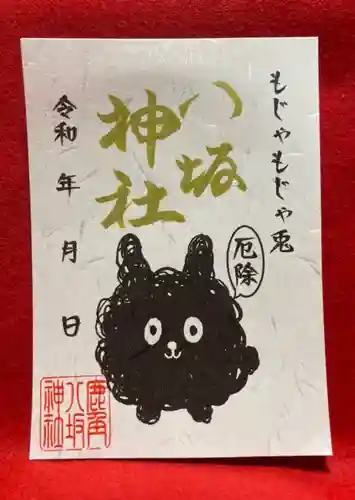 もじゃもじゃ兎
八坂
神社
厄除
令和 年 月 日
鹿角
八坂
神社